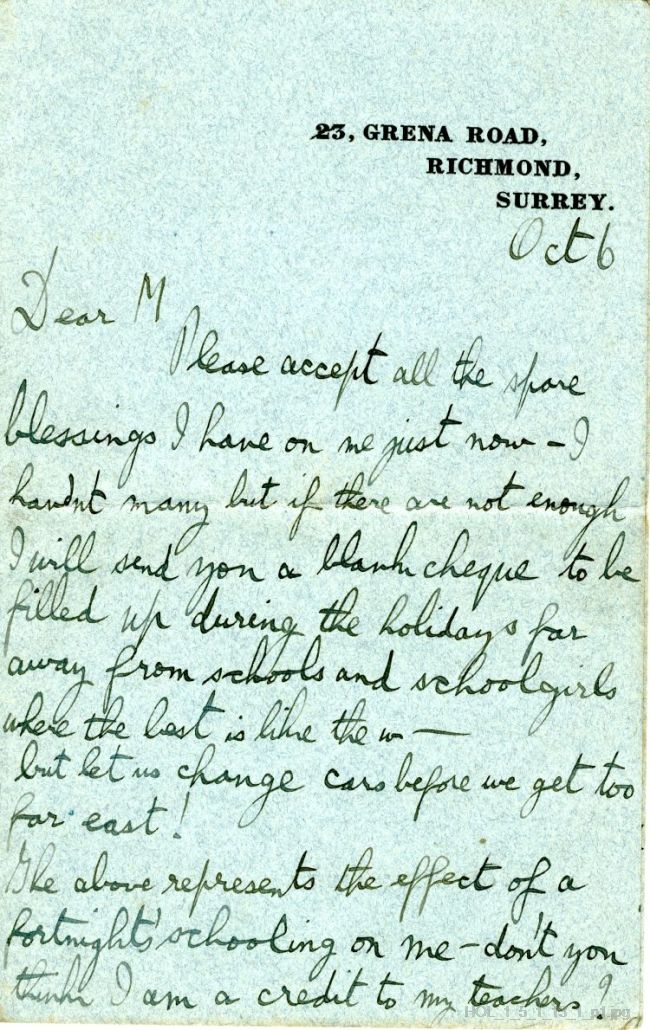 23, GRENA ROAD,
RICHMOND,
SURREY.
Oct 6
Dear M
Please accept all the spare
blessings I have on me just now – I
havn't many but if there are not enough
I will send you a blank cheque to be
filled up during the holidays far
away from schools and schoolgirls
where the best is like the w —
but let us change cars before we get too
far east!
The above represents the effect of a
fortnight's schooling on me – don't you
think I am a credit to my teachers?
HOL_1_5_1_15_1_p1.jpg